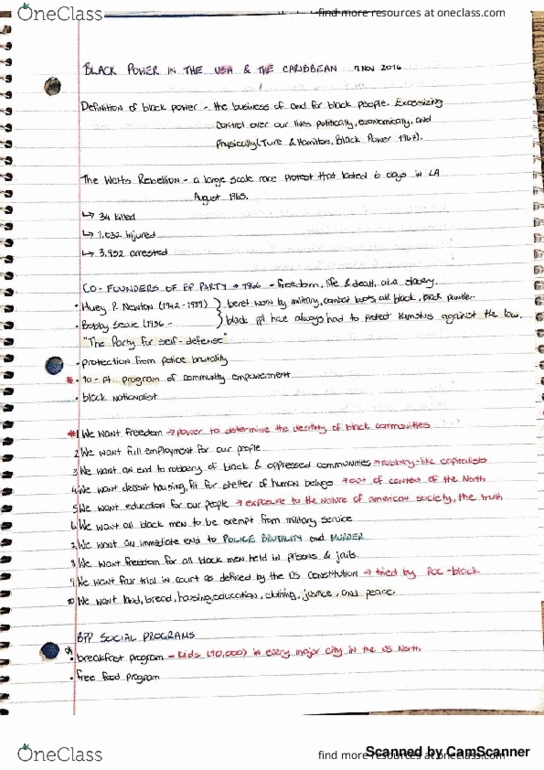 OneClass
find more resources at oneclass.com
BLACK POWER IN THE USA & THE CARIBBEAN 7 NOV 2016
Definition of black power - the business of and for black people. Excersizing
control over our lives politically, economically, and
physically (Ture & Hamilton, Black Power 1967).
The Watts Rebellion - a large scale race protest that lasted 6 days in LA
August 1965.
↳ 34 killed
↳ 1,032 injured
↳ 3,952 arrested
CO-FOUNDERS OF BP PARTY → 1966 - freedom, life & death, aka slavery.
• Huey P. Newton (1942-1989) } beret worn by military, combat boots, all black, black panther
• Bobby Seale (1936 - } black ppl have always had to protect themselves against the law.
"The Party for self-defense"
• protection from police brutality
* • 10-pt. program of community empowerment
• black nationalist
#1 We want freedom → power to determine the destiny of black communities
2 We want full employment for our people
3 We want an end to robbery of black & oppressed communities → robbery-like capitalists
4 We want decent housing, fit for shelter of human beings → out of context of the North
5 We want education for our people → exposure to the nature of american society, the truth
6 We want all black men to be exempt from military service
7 We want an immediate end to POLICE BRUTALITY and MURDER
8 We want freedom for all black men held in prisons & jails
9 We want fair trial in court as defined by the US constitution → tried by POC-black
10 We want land, bread, housing, education, clothing, justice, and peace
BPP SOCIAL PROGRAMS
• breakfast program - kids (10,000) in every major city in the US North,
• free food program
OneClass
find more resources at oneclass.com
Scanned by CamScanner